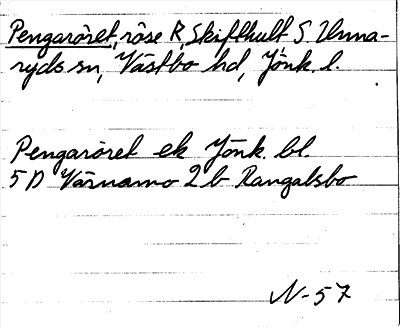 Pengaröret, röse R, Skifthult S Unna-
ryds sn, Västbo hd, Jönk. l.
Pengaröret ek Jönk. bl.
5 D Värnamo 2 b Rangalsbo
N-57